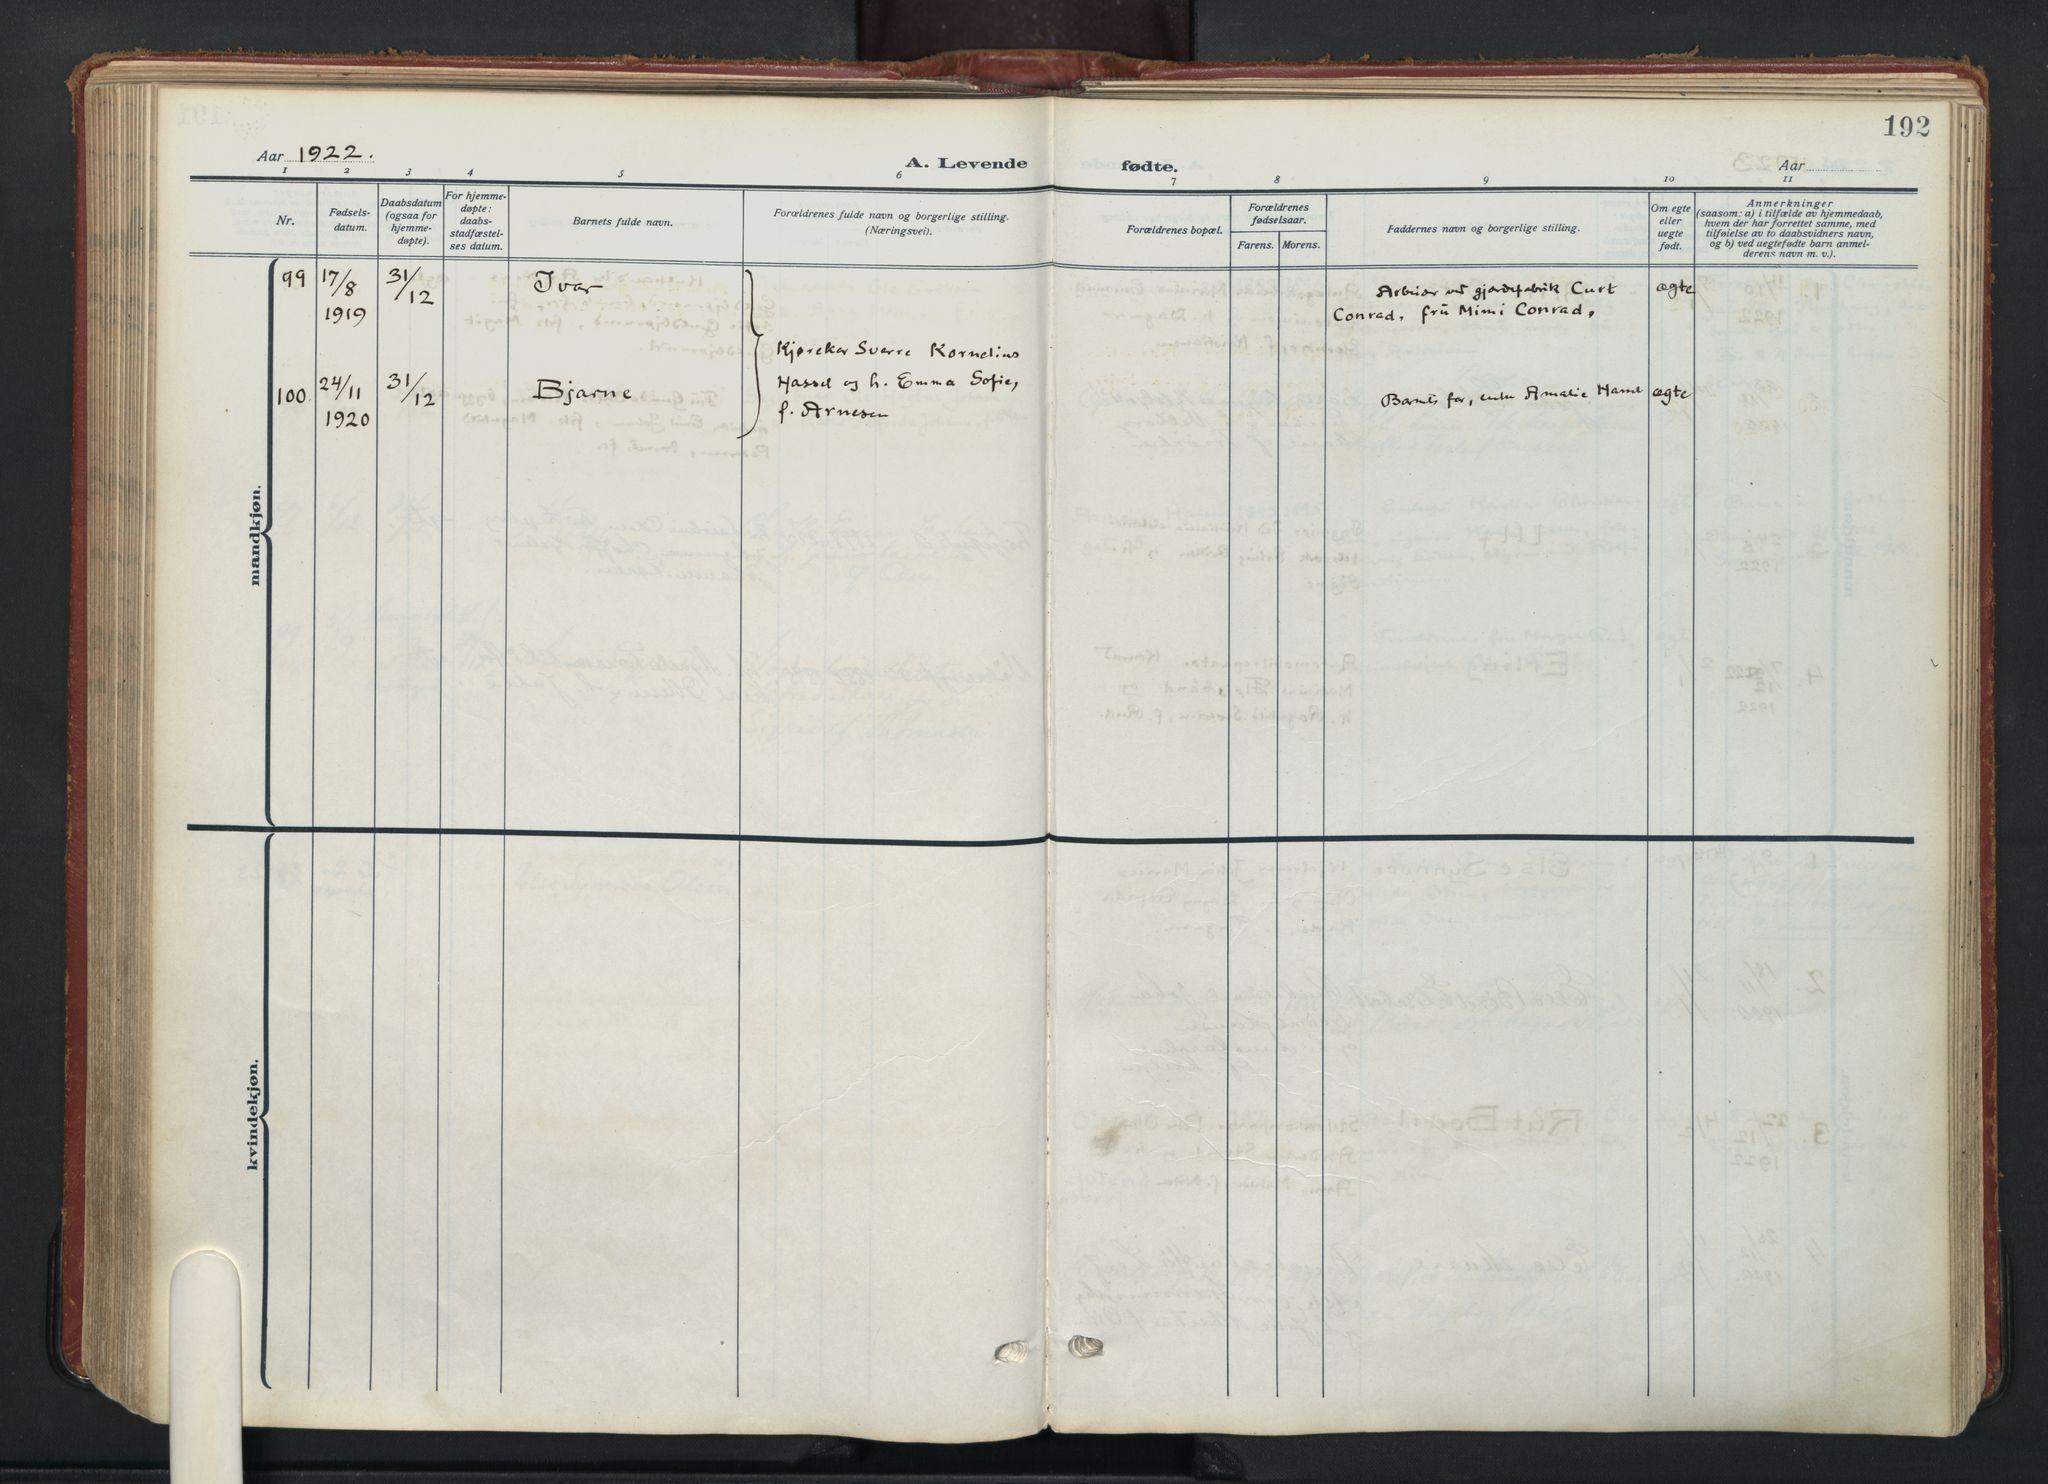 192
Aar 1922.
A. Levende fødte.
Aar
1 2 3 4 5 6 7 8 9 10 11
Nr.
Fødsels-
datum.
Daabsdatum
(ogsaa for
hjemme-
døpte).
For hjemme-
døpte:
daabs-
stadfæstel-
ses datum.
Barnets fulde navn.
Forældrenes fulde navn og borgerlige stilling.
(Næringsvei).
Forældrenes bopæl.
Forældrenes
fødselsaar.
Farens. Morens.
Faddernes navn og borgerlige stilling.
Om egte
eller
uegte
født.
Anmerkninger
(saasom: a) i tilfælde av hjemmedaab,
hvem der har forrettet samme, med
tilføielse av to daabsvidners navn,
og b) ved uegtefødte barn anmel-
derens navn m. v.).
mandkjøn.
99 17/8 1919 31/12 Ivar
Arbeider ved gjærdefabrik Curt
Conrad, frü Mimi Conrad,
ægte
Kjørekar Sverre Kornelius
Hassel og h. Emma Sofie,
f. Arnesen
100. 24/11 1920 31/12 Bjarne
Barnets far, enke Amalie Hassel
ægte
kvindekjøn.